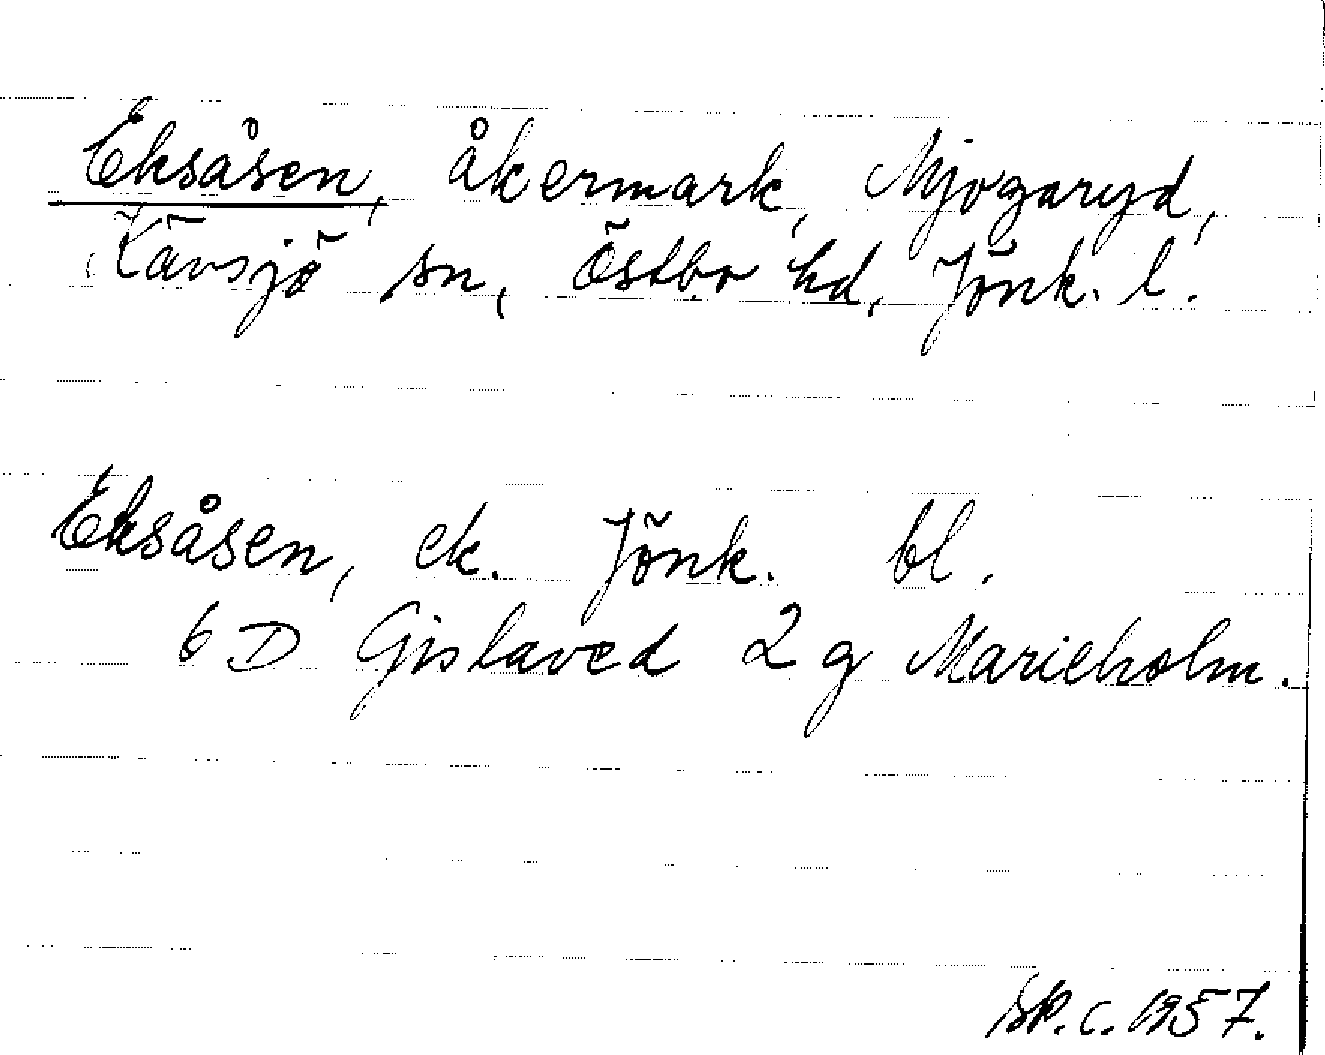 Eksåsen, åkermark, Mjogaryd,
Kävsjö sn, Östbo hd, Jönk. l.
Eksåsen, ek. Jönk. bl.
6 D Gislaved 2 g Marieholm.
sk. c. 1957.